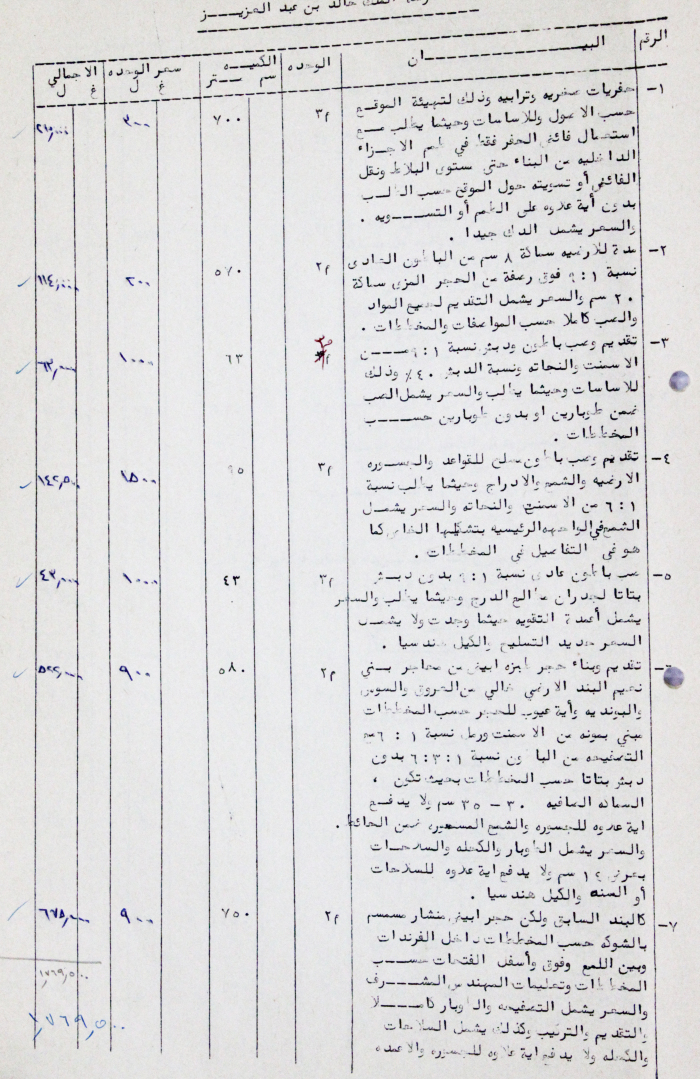 الملك خالد بن عبد العزيز
الرقم البيان الوحده الكميه سعر الوحده الاجمالي
متر سم
ل غ ل غ
١- حفريات صخريه وترابيه وذلك لتهيئة الموقع م٣ ٧٠٠ ٣٠٠ ٢١٠,٠٠٠
حسب الاصول وللاساسات وحيثما يطلب مع
استعمال فائض الحفر فقط في طمم الاجزاء
الداخليه من البناء حتى مستوى البلاط ونقل
الفائض أو تسويته حول الموقع حسب الطلب
بدون أية علاوه على الطمم أو التسويه .
والسعر يشمل الدك جيدا .
٢- مدة للارضيه سماكة ٨ سم من الباطون العادى م٢ ٥٧٠ ٢٠٠ ١١٤,٠٠٠
نسبة ١:٩ فوق رصفة من الحجر المزى سماكة
٢٠ سم والسعر يشمل التقديم لجميع المواد
والصب كاملا حسب المواصفات والمخططات .
٣- تقديم وصب باطون ودبش نسبة ١:٩ من م٣ ٦٣ ١٠٠٠ ٦٣,٠٠٠
الاسمنت والنحاته ونسبة الدبش ٤٠٪ وذلك
للاساسات وحيثما يطلب والسعر يشمل الصب
ضمن طوبارين او بدون طوبارين حسب
المخططات .
٤- تقديم وصب باطون مسلح للقواعد والجسوره م٣ ٩٥ ١٥٠٠ ١٤٢,٥٠٠
الارضيه والشمع والادراج وحيثما يطلب نسبة
١:٦ من الاسمنت والنحاته والسعر يشمل
الشمع في الواجهه الرئيسيه بتشكيلها الخاص كما
هو في التفاصيل في المخططات .
٥- صب باطون عادى نسبة ١:٩ بدون دبش م٣ ٤٣ ١٠٠٠ ٤٣,٠٠٠
بتاتا لجدران مطالع الدرج وحيثما يطلب والسعر
يشمل أعمدة التقويه حيثما وجدت ولا يشمل
السعر حديد التسليح والكيل هندسيا .
٦- تقديم وبناء حجر طبزه ابيض من محاجر بني م٢ ٥٨٠ ٩٠٠ ٥٢٢,٠٠٠
نعيم البند الارضي خالي من العروق والسوس
والبونديه وأية عيوب للحجر حسب المخططات
مبني بمونه من الاسمنت ورمل نسبة ١:٦ مع
التصفيحه من الباطون نسبة ١:٣:٦ بدون
دبش بتاتا حسب المخططات بحيث تكون ،
السماكه الصافيه ٣٠-٣٥ سم ولا يدفع
اية علاوه للجسوره والشمع المستور ضمن الحائط .
والسعر يشمل الطوبار والكحله والسلاحات
بعرض ١٢ سم ولا يدفع اية علاوه للسلاحات
أو السنه والكيل هندسيا .
٧- كالبند السابق ولكن حجر ابيض منشار مسمسم م٢ ٧٥٠ ٩٠٠ ٦٧٥,٠٠٠
بالشوكه حسب المخططات داخل الفرندات
وبين اللمع وفوق وأسفل الفتحات حسب
المخططات وتعليمات المهندس المشرف
والسعر يشمل التصفيحه والطوبار كاملا
والتقديم والتركيب وكذلك يشمل السلاحات
والكحله ولا يدفع اية علاوه للجسوره والاعمده
١,٧٦٩,٥٠٠
١,٧٦٩,٥٠٠